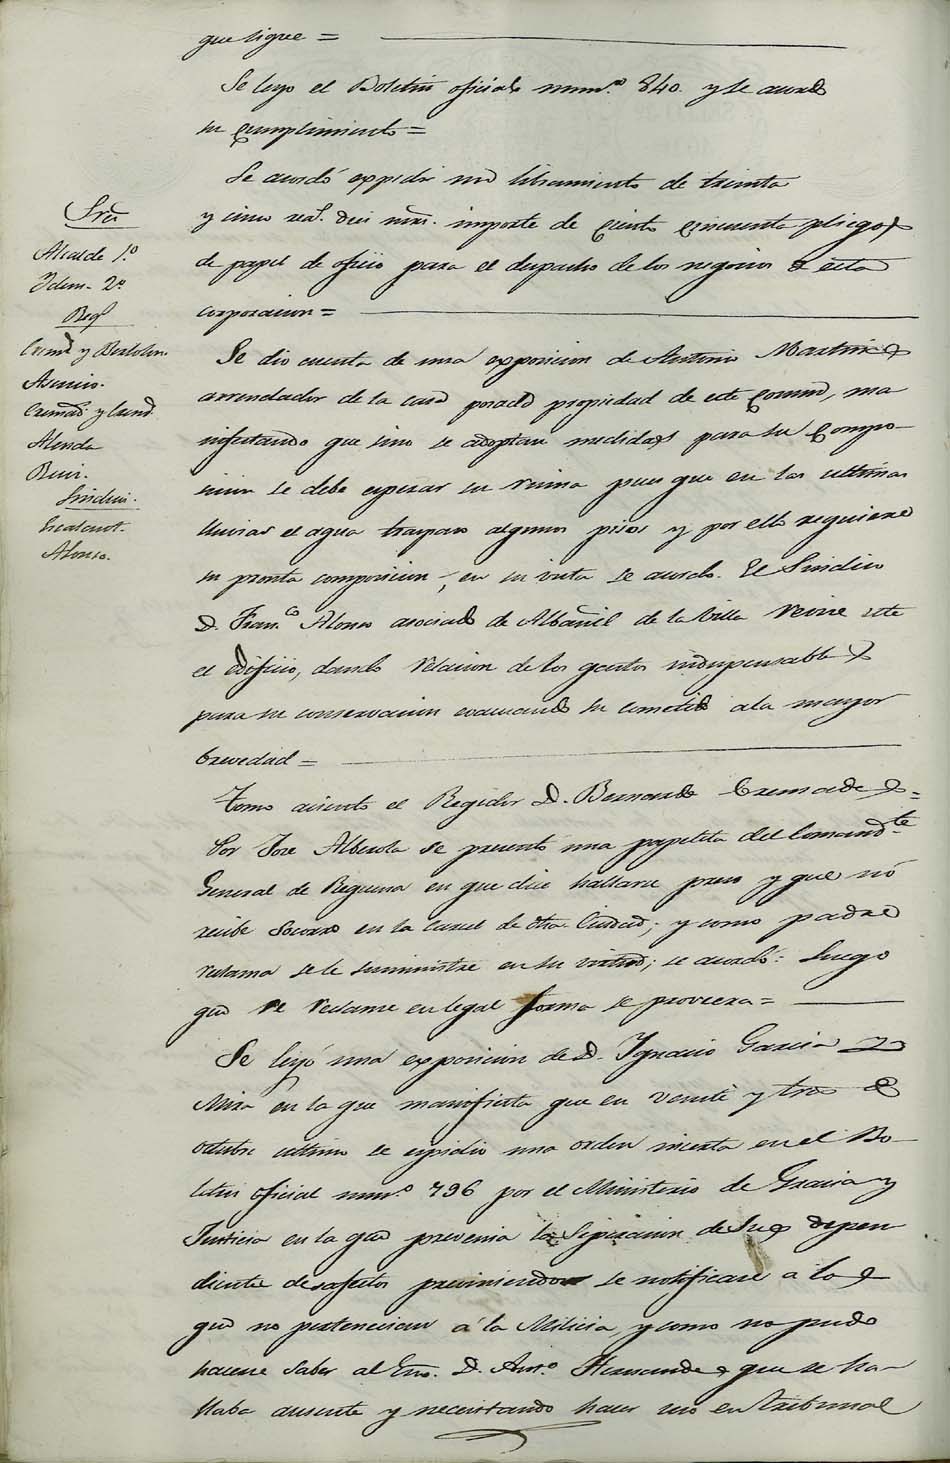 que sigue =
Se leyo el Boletin oficial num.º 840. y se acordó
su cumplimiento =
Se acordó expedir un libramiento de treinta
y cinco real.s diez mrs. importe de ciento cincuenta pliegos
de papel de oficio para el despacho de los negocios de esta
corporacion =
Sres
Alcalde 1.º
Idem. 2.º
Reg.s
y Bertolin.
Asencio.
Alenda
Sindicos.
Alonso.
Se dio cuenta de una exposicion de Antonio Martinez
arrendador de la casa posada propiedad de este comun, ma
nifestando que sino se adoptan medidas para su compo-
sicion se debe esperar su ruina pues que en las ultimas
lluvias el agua traspaso algunos pisos y por ello requiere
su pronta composicion, en su vista se acordo. El Sindico
D. Fran.co Alonso asociado de Albañil de la Villa revise este
el edificio, dando relacion de los gastos indispensables
para su conservacion evacuando su cometido ala mayor
brevedad =
Tomo asiento el Regidor D. Bernardo Cremades =
Por Jose Alberola se presentó una papeleta del Comand.te
General de Requena en que dice hallarse preso y que nó
recibe socorro en la carcel de dha. Ciudad; y como padre
reclama se le suministre en su virtud; se acordó: Luego
que se reclame en legal forma se proveera =
Se leyó una exposicion de D. Ygnacio Garcia
Mira en la que manifiesta que en veinte y tres de
octubre ultimo se espidio una orden inserta en el Bo-
letin oficial num.º 796 por el Ministerio de Gracia y
Justicia en la que prevenia la separacion de sus depen
dientes desafectos previniendo se notificase a los
que no pertenecian á la Milicia, y como no pudo
hacerse saber al Eno. D. Ant.º Hernandez que se ha-
llaba ausente y necesitando hacer uso en tribunal